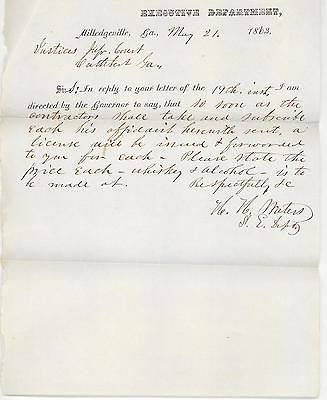 EXECUTIVE DEPARTMENT,
Milledgeville, Ga., May 21. 1863.
Justices Inf. Court
Cuthbert Ga,
Sirs: In reply to your letter of the 19th inst I am
directed by the Governor to say, that so soon as the
contractors shall take and subscribe
Each his affidavit herewith sent, a
license will be issued & forwarded
to you for each - Please state the
price Each - whiskey & alcohol - is to
be made at. Respectfully &c
H. H. Waters
S. E. Dept